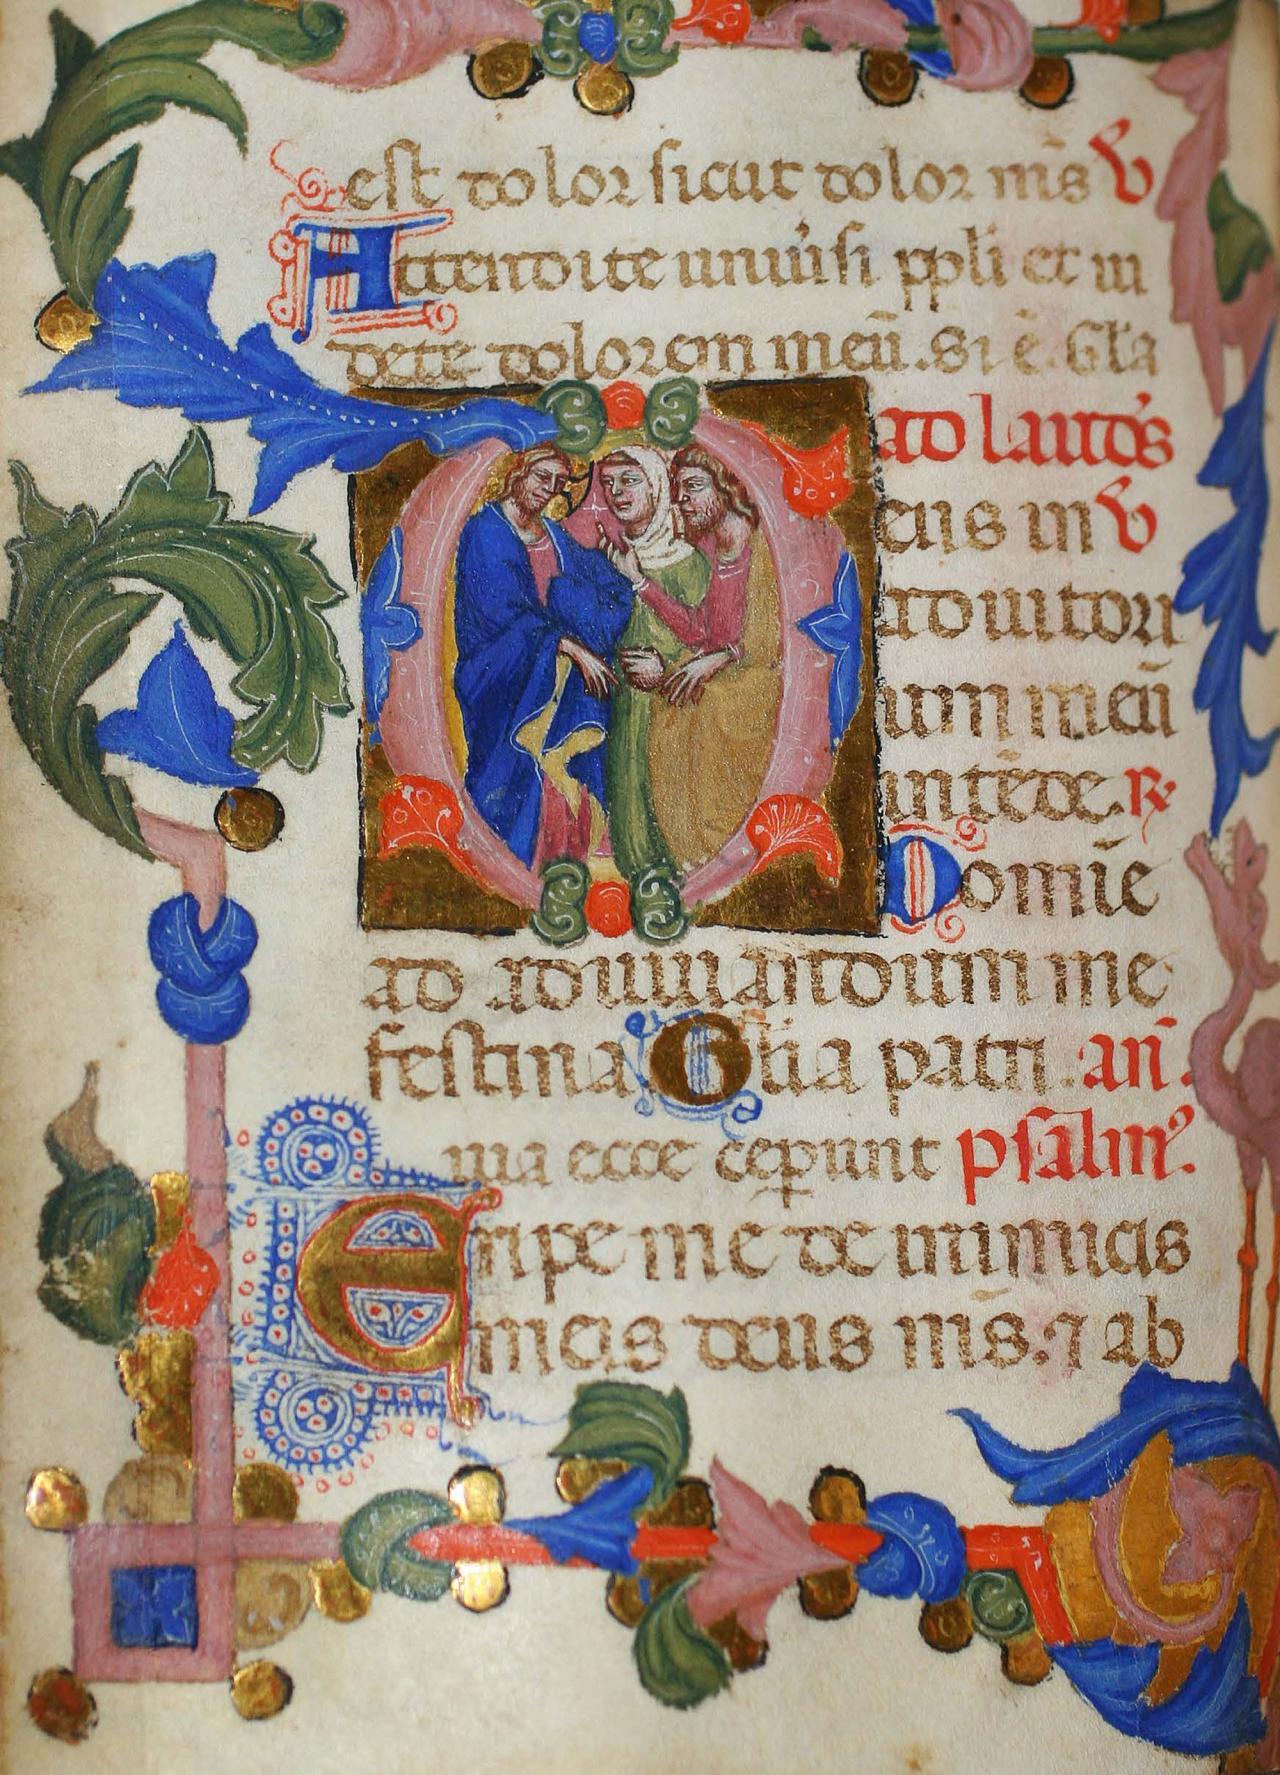 est dolor sicut dolor m̄s V
Attendite uniũsi ppli et ui
dete dolorem meū. Si ē. Gl̄a
ad laudes
eus in V
adiutori
um meū
intēde. R
Domīe
ad adiuuandum me
festina Glīa patri. añ.
ma ecce ceperunt psalm⁹.
Eripe me de inimicis
micis deus m̄s. ⁊ ab